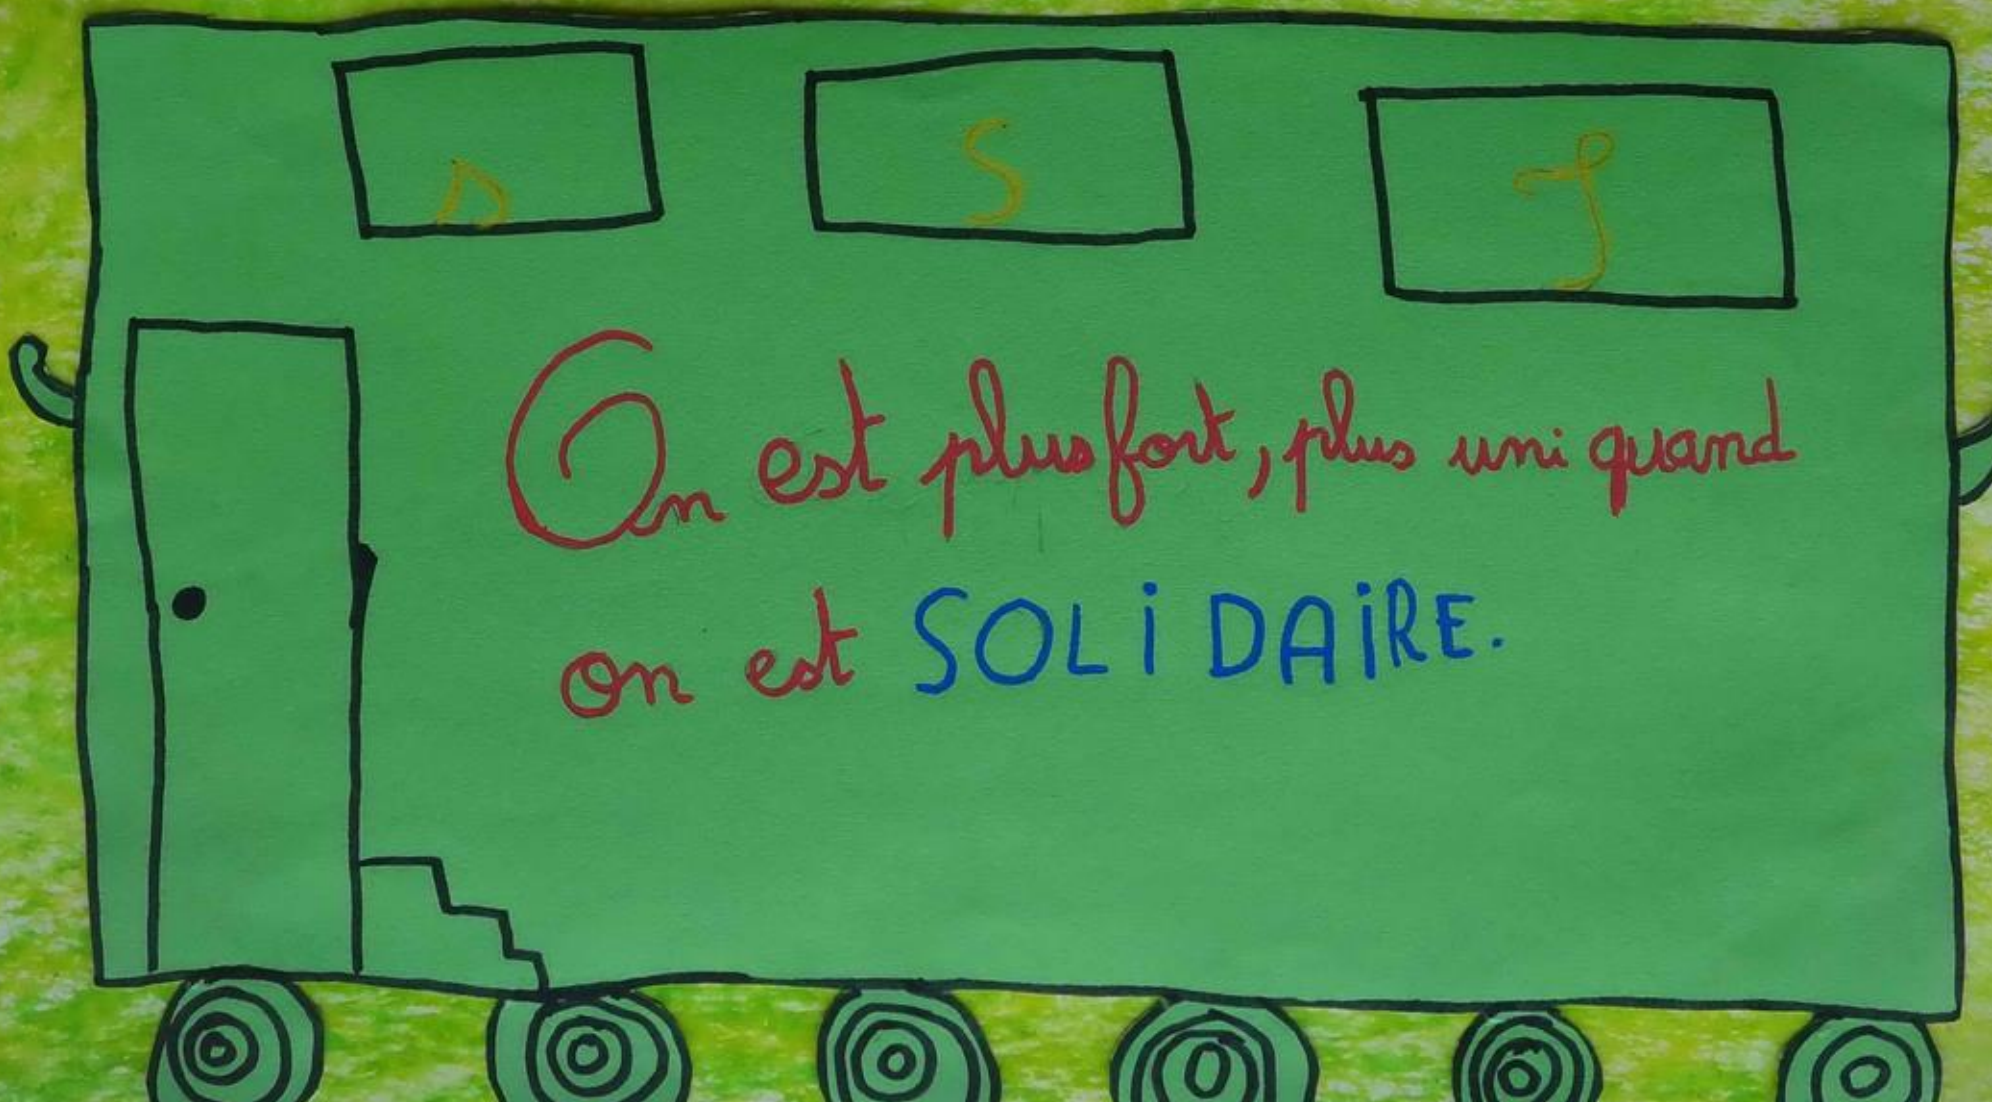 s S S
On est plus fort, plus uni quand
on est SOLiDAiRE.